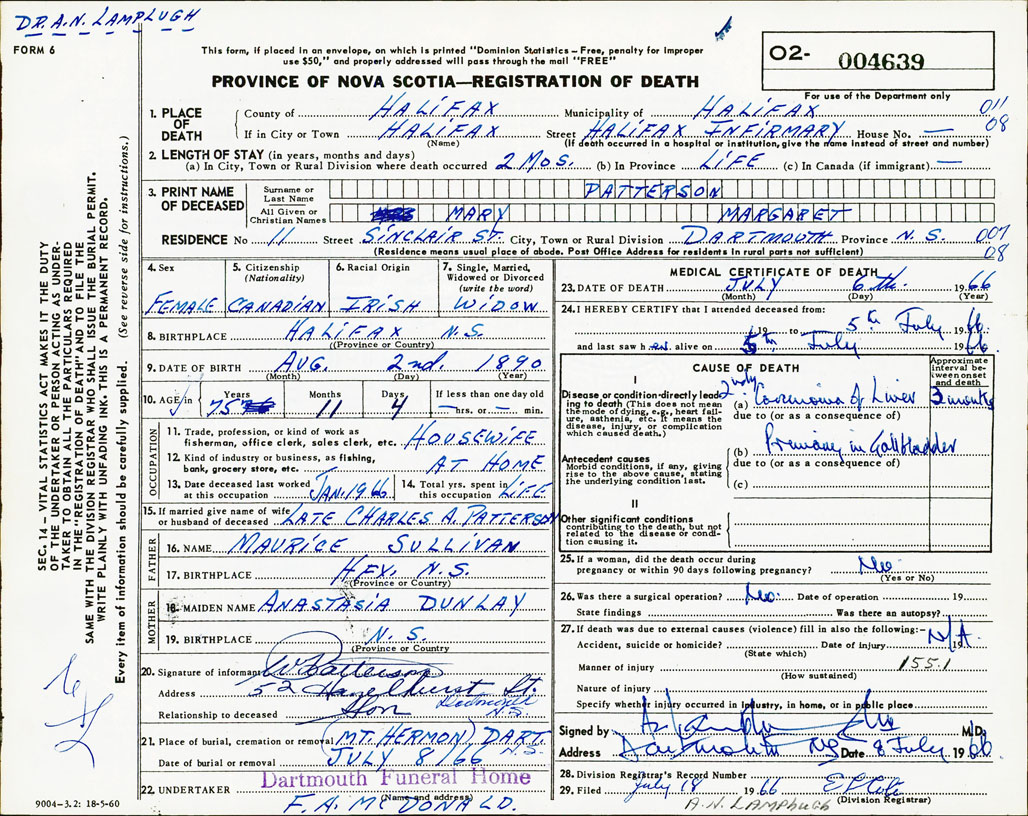 DR. A.N. LAMPLUGH
FORM 6
This form, if placed in an envelope, on which is printed "Dominion Statistics – Free, penalty for improper
use $50," and properly addressed will pass through the mail "FREE"
PROVINCE OF NOVA SCOTIA—REGISTRATION OF DEATH
02- 004639
For use of the Department only
SEC. 14 – VITAL STATISTICS ACT MAKES IT THE DUTY
OF THE UNDERTAKER OR PERSON ACTING AS UNDER-
TAKER TO OBTAIN ALL THE PARTICULARS REQUIRED
IN THE "REGISTRATION OF DEATH" AND TO FILE THE
SAME WITH THE DIVISION REGISTRAR WHO SHALL ISSUE THE BURIAL PERMIT.
WRITE PLAINLY WITH UNFADING INK. THIS IS A PERMANENT RECORD.
Every item of information should be carefully supplied. (See reverse side for instructions.)
1. PLACE OF DEATH
County of HALIFAX Municipality of HALIFAX 011
If in City or Town HALIFAX Street HALIFAX INFIRMARY House No. — 08
(Name) (If death occurred in a hospital or institution, give the name instead of street and number)
2. LENGTH OF STAY (in years, months and days)
(a) In City, Town or Rural Division where death occurred 2 MOS. (b) In Province LIFE (c) In Canada (if immigrant) —
3. PRINT NAME OF DECEASED
Surname or Last Name PATTERSON
All Given or Christian Names MARY MARGARET
RESIDENCE No 11 Street SINCLAIR ST. City, Town or Rural Division DARTMOUTH Province N.S. 007
(Residence means usual place of abode. Post Office Address for residents in rural parts not sufficient) 08
4. Sex 5. Citizenship (Nationality) 6. Racial Origin 7. Single, Married, Widowed or Divorced (write the word)
FEMALE CANADIAN IRISH WIDOW
8. BIRTHPLACE HALIFAX N.S.
(Province or Country)
9. DATE OF BIRTH AUG. 2nd. 1890
(Month) (Day) (Year)
10. AGE in Years Months Days If less than one day old
75 11 4 — hrs. or — min.
OCCUPATION
11. Trade, profession, or kind of work as
fisherman, office clerk, sales clerk, etc. HOUSEWIFE
12. Kind of industry or business, as fishing,
bank, grocery store, etc. AT HOME
13. Date deceased last worked at this occupation JAN. 1966 14. Total yrs. spent in this occupation LIFE
15. If married give name of wife
or husband of deceased LATE CHARLES A. PATTERSON
FATHER
16. NAME MAURICE SULLIVAN
17. BIRTHPLACE HFX. N.S.
(Province or Country)
MOTHER
18. MAIDEN NAME ANASTASIA DUNLAY
19. BIRTHPLACE N.S.
(Province or Country)
20. Signature of informant W Patterson
Address 52 Hazelhurst St.
Dartmouth N.S.
Relationship to deceased Son
21. Place of burial, cremation or removal (MT. HERMON) DART. N.S.
Date of burial or removal JULY 8/66
Dartmouth Funeral Home
22. UNDERTAKER
(Name and address)
F.A. McDONALD.
9004–3.2: 18-5-60
MEDICAL CERTIFICATE OF DEATH
23. DATE OF DEATH JULY 6th. 1966
(Month) (Day) (Year)
24. I HEREBY CERTIFY that I attended deceased from:
19 to 5th July 1966.
and last saw her alive on 5th July 1966.
CAUSE OF DEATH
Approximate interval between onset and death
I
Disease or condition directly leading to death (This does not mean the mode of dying, e.g., heart failure, asthenia, etc. It means the disease, injury, or complication which caused death.)
(a) 2ndy Carcinoma of Liver 3 months
due to (or as a consequence of)
Antecedent causes
Morbid conditions, if any, giving rise to the above cause, stating the underlying condition last.
(b) Primary in Gallbladder
due to (or as a consequence of)
(c)
II
Other significant conditions contributing to the death, but not related to the disease or condition causing it.
25. If a woman, did the death occur during
pregnancy or within 90 days following pregnancy? No
(Yes or No)
26. Was there a surgical operation? No. Date of operation 19
State findings Was there an autopsy?
27. If death was due to external causes (violence) fill in also the following:–
N/A
Accident, suicide or homicide? Date of injury 19
(State which)
Manner of injury 155.1
(How sustained)
Nature of injury
Specify whether injury occurred in industry, in home, or in public place
Signed by M.D.
Address Dartmouth NS Date 8 July 1966
28. Division Registrar's Record Number
29. Filed July 18 1966
A.N. LAMPLUGH (Division Registrar)